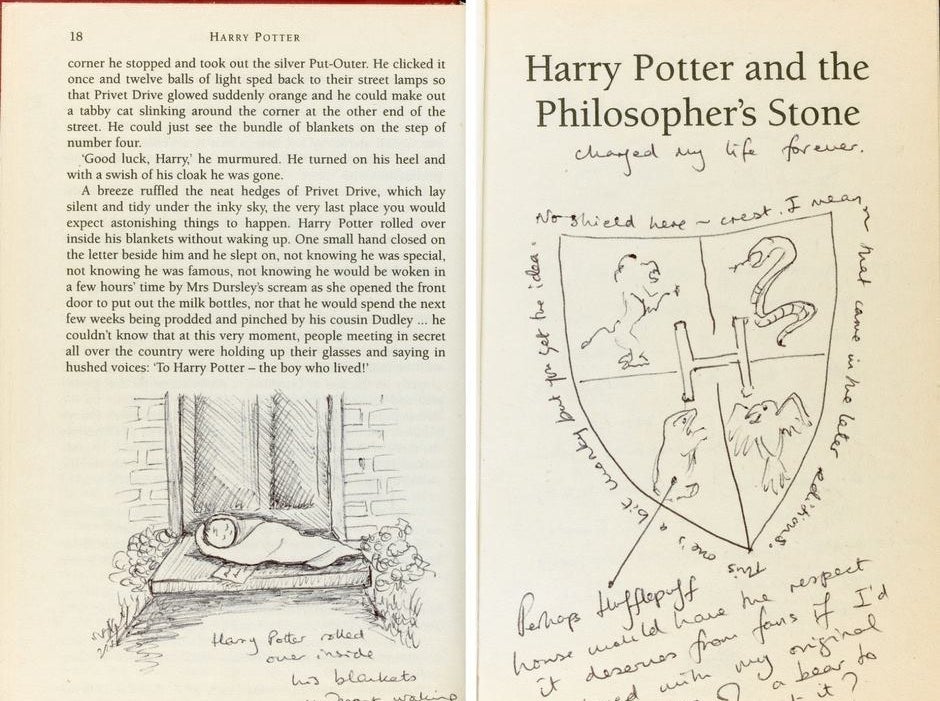 18
HARRY POTTER
corner he stopped and took out the silver Put-Outer. He clicked it
once and twelve balls of light sped back to their street lamps so
that Privet Drive glowed suddenly orange and he could make out
a tabby cat slinking around the corner at the other end of the
street. He could just see the bundle of blankets on the step of
number four.
‘Good luck, Harry,’ he murmured. He turned on his heel and
with a swish of his cloak he was gone.
A breeze ruffled the neat hedges of Privet Drive, which lay
silent and tidy under the inky sky, the very last place you would
expect astonishing things to happen. Harry Potter rolled over
inside his blankets without waking up. One small hand closed on
the letter beside him and he slept on, not knowing he was special,
not knowing he was famous, not knowing he would be woken in
a few hours’ time by Mrs Dursley’s scream as she opened the front
door to put out the milk bottles, nor that he would spend the next
few weeks being prodded and pinched by his cousin Dudley ... he
couldn’t know that at this very moment, people meeting in secret
all over the country were holding up their glasses and saying in
hushed voices: ‘To Harry Potter – the boy who lived!’
Harry Potter rolled
over inside
his blankets
waking
Harry Potter and the
Philosopher’s Stone
changed my life forever.
No shield here – crest. I mean
that came in the later editions.
This one's a bit wonky but you get the idea.
H
Perhaps Hufflepuff
house would have the respect
it deserves from fans if I'd
with my original
a bear to
it?